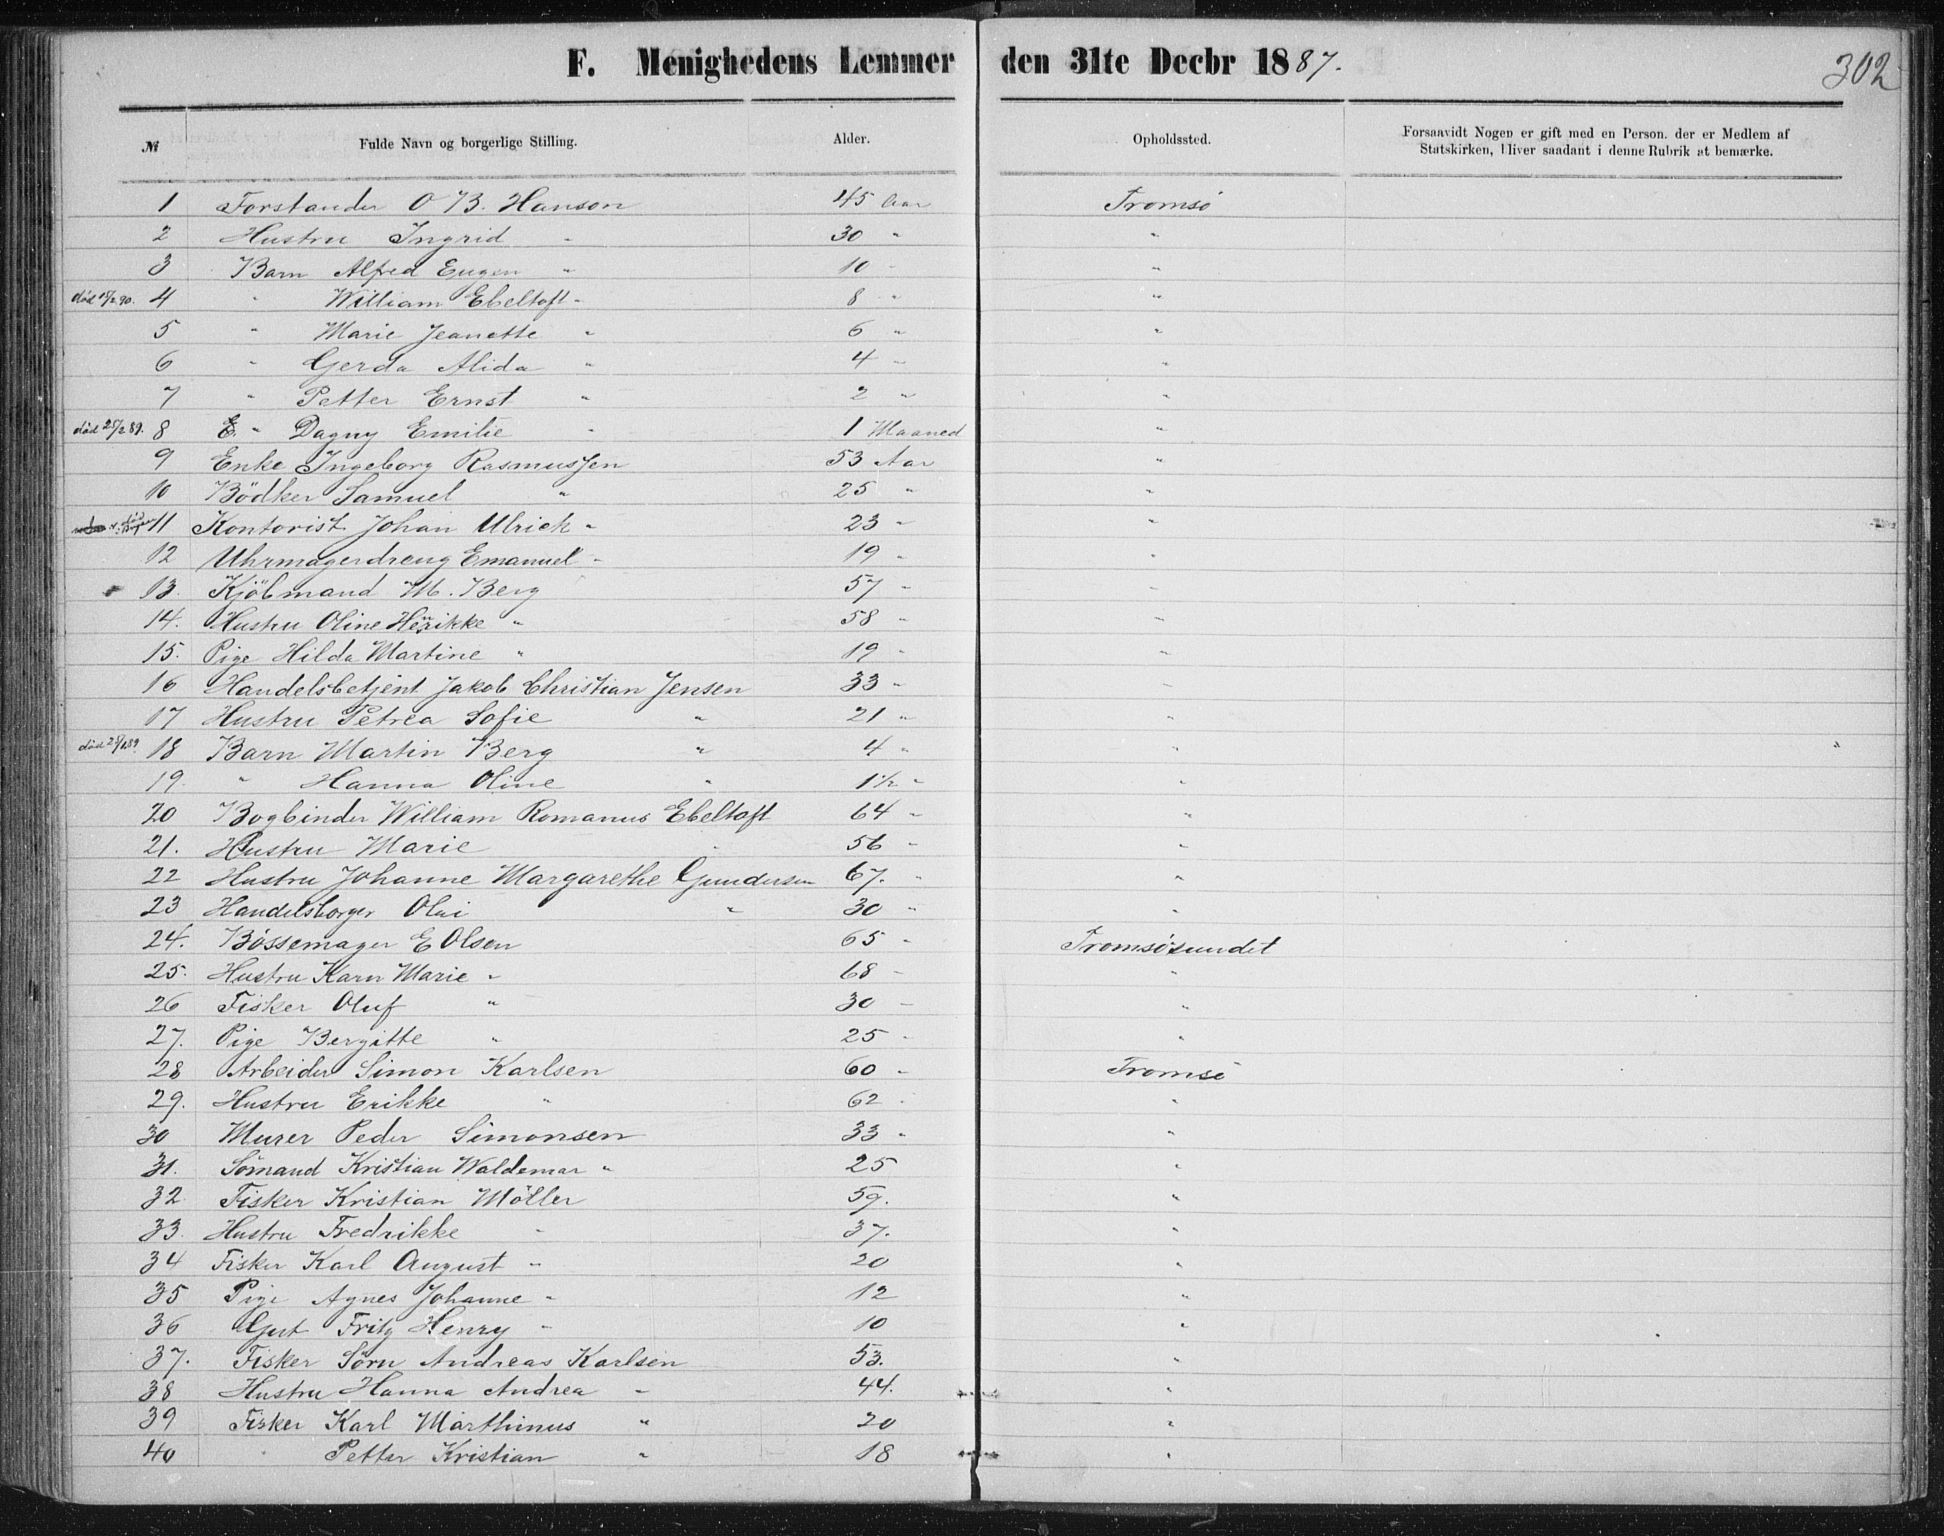 F. Menighedens Lemmer den 31te Decbr 1887.
302
№ Fulde Navn og borgerlige Stilling. Alder. Opholdssted. Forsaavidt Nogen er gift med en Person, der er Medlem af
Statskirken, bliver saadant i denne Rubrik at bemærke.
1 Forstander O B. Hanson 45 Aar Tromsö
2 Hustru Ingrid " 30 " "
3 Barn Alfred Eugen " 10 " "
død 15/2 90. 4 " William Ebeltoft " 8 " "
5 " Marie Jeanette " 6 " "
6 " Gerda Alida " 4 " "
7 " Petter Ernst " 2 " "
død 25/2 89. 8 E. " Dagny Emilie " 1 Maaned "
9 Enke Ingeborg Rasmussen 53 Aar "
10 Bödker Samuel " 25 " "
11 Kontorist Johan Ulrick " 23 " "
12 Uhrmagerdreng Emanuel " 19 " "
13. Kjöbmand M. Berg 57 " "
14. Hustru Oline Henrikke " 58 " "
15. Pige Hilda Martine " 19 " "
16 Handelsbetjent Jakob Christian Jensen 33 " "
17 Hustru Petrea Sofie " 21 " "
18 Barn Martin Berg " 4 " "
19. " Hanna Oline " 1½ " "
20 Bogbinder William Romanus Ebeltoft 64 " "
21. Hustru Marie " 56 " "
22 Hustru Johanne Margarethe Gundersen 67. " "
23 Handelsborger Olai " 30 " "
24. Bössemager E Olsen 65 " Tromsösundet
25. Hustru Karn Marie " 68 " "
26 Fisker Oluf " 30 " "
27. Pige Bergitte " 25 " "
28 Arbeider Simon Karlsen 60 " Tromsö
29. Hustru Erikke " 62 " "
30 Murer Peder Simonsen 33 " "
31. Sömand Kristian Waldemar " 25 "
32 Fisker Kristian Möller 59. "
33. Hustru Fredrikke " 37. "
34 Fisker Karl August " 20 "
35 Pige Agnes Johanne " 12 "
36 Gut Fritz Henry " 10 "
37. Fisker Sörn Andreas Karlsen 53. "
38 Hustru Hanna Andrea " 44. "
39 Fisker Karl Marthinus " 20 "
40 " Petter Kristian " 18 "